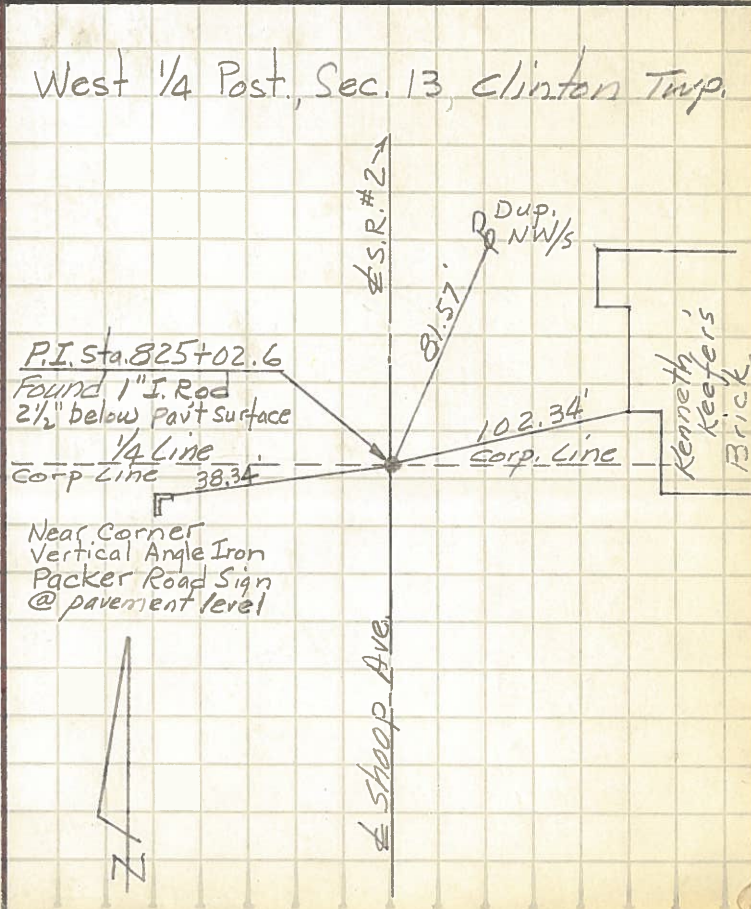 West 1/4 Post., Sec. 13, Clinton Twp.
℄ S.R. #2→
Dup.
NW/S
81.57'
P.I. Sta. 825+02.6
Found 1" I. Rod
2½" below pav't surface
1/4 Line
Corp Line
38.34'
102.34'
Corp. Line
Kenneth
Keefer's
Brick
Near Corner
Vertical Angle Iron
Packer Road Sign
@ pavement level
℄ Shoop Ave.
N